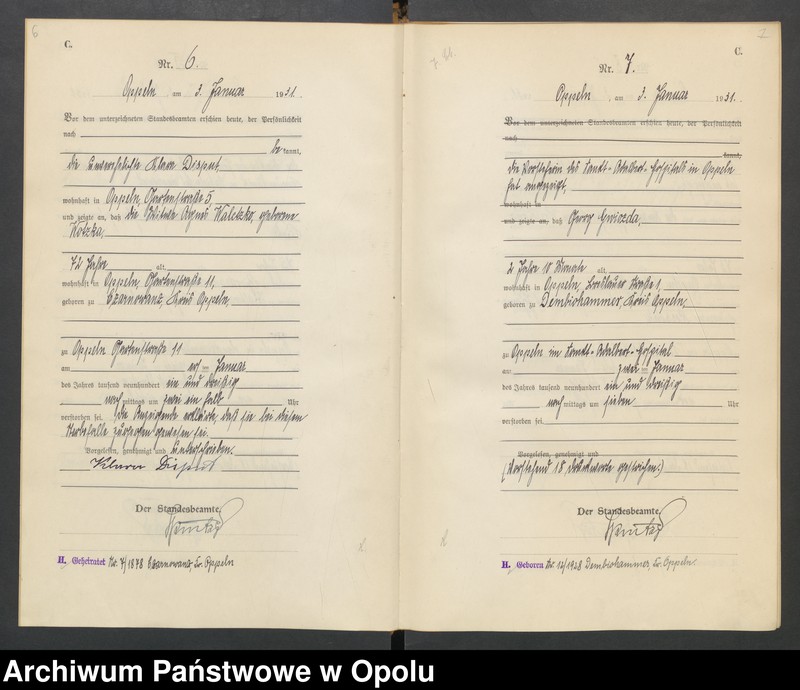 6
C.
Nr. 6.
Oppeln, am 3. Januar 1931.
Vor dem unterzeichneten Standesbeamten erschien heute, der Persönlichkeit
nach
bekannt,
die unverehelichte Klara Disput
wohnhaft in Oppeln, Gartenstraße 5,
und zeigte an, daß die Witwe Agnes Waletzko, geborene
Kotzka,
72 Jahre alt,
wohnhaft in Oppeln, Gartenstraße 11,
geboren zu Czarnowanz, Kreis Oppeln,
zu Oppeln Gartenstraße 11
am Januar
des Jahres tausend neunhundert ein und dreißig
nachmittags um zwei ein halb Uhr
verstorben sei. Die Anzeigende erklärte, daß sie bei diesem
Sterbefalle zugegen gewesen sei.
Vorgelesen, genehmigt und unterschrieben.
Klara Disput
Der Standesbeamte.
H. Geheiratet Nr. 7/1878 Czarnowanz, Kr. Oppeln
7
C.
Nr. 7.
Oppeln, am 3. Januar 1931.
Vor dem unterzeichneten Standesbeamten erschien heute, der Persönlichkeit
nach
kannt,
die Vorsteherin des Sankt-Adalbert-Hospitals in Oppeln
hat angezeigt,
wohnhaft in
und zeigte an, daß Georg Gwiozda,
2 Jahre 10 Monate alt,
wohnhaft in Oppeln, Breslauer Straße 1,
geboren zu Dembiohammer, Kreis Oppeln,
zu Oppeln im Sankt-Adalbert-Hospital
am zwei Januar
des Jahres tausend neunhundert ein und dreißig
nachmittags um sieben Uhr
verstorben sei.
Vorgelesen, genehmigt und
(Vorstehend 18 Druckworte gestrichen.)
Der Standesbeamte.
H. Geboren Nr. 12/1928 Dembiohammer, Kr. Oppeln.
Archiwum Państwowe w Opolu